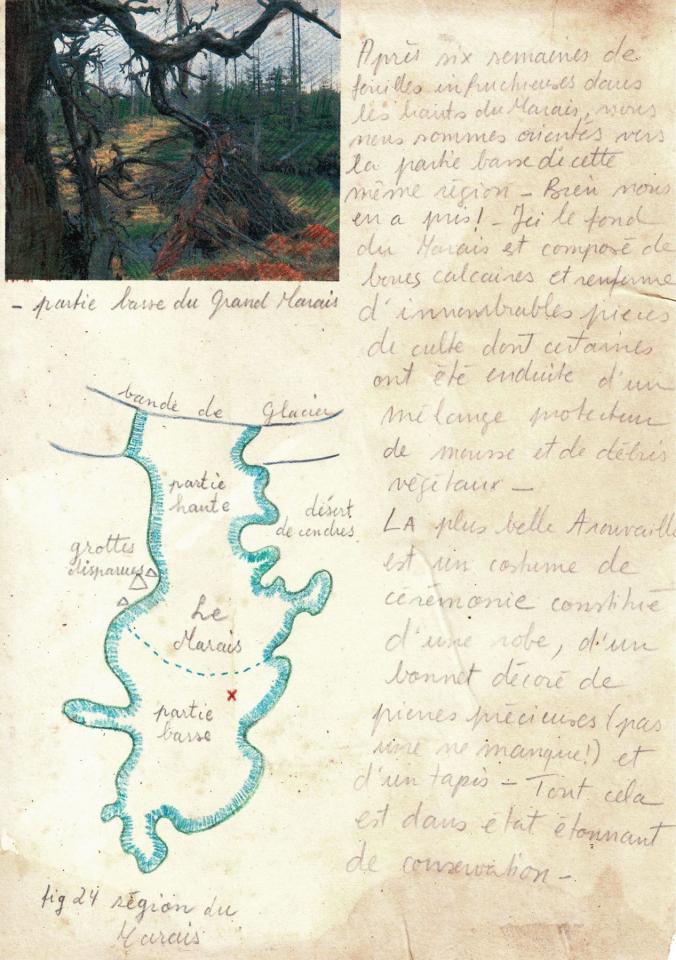 Après six semaines de
fouilles infructueuses dans
les hauts du Marais, nous
nous sommes orientés vers
la partie basse de cette
même région – Bien nous
en a pris! – Ici le fond
du Marais est composé de
boues calcaires et renferme
d'innombrables pièces
de culte dont certaines
ont été enduite d'un
mélange protecteur
de mousse et de débris
végétaux –
LA plus belle trouvaille
est un costume de
cérémonie constitué
d'une robe, d'un
bonnet décoré de
pierres précieuses (pas
une ne manque!) et
d'un tapis – Tout cela
est dans état étonnant
de conservation –
– partie basse du Grand Marais
bande de Glacier
partie
haute
désert
de cendres
grottes
disparues
Le
Marais
partie
basse
fig 24 région du
Marais